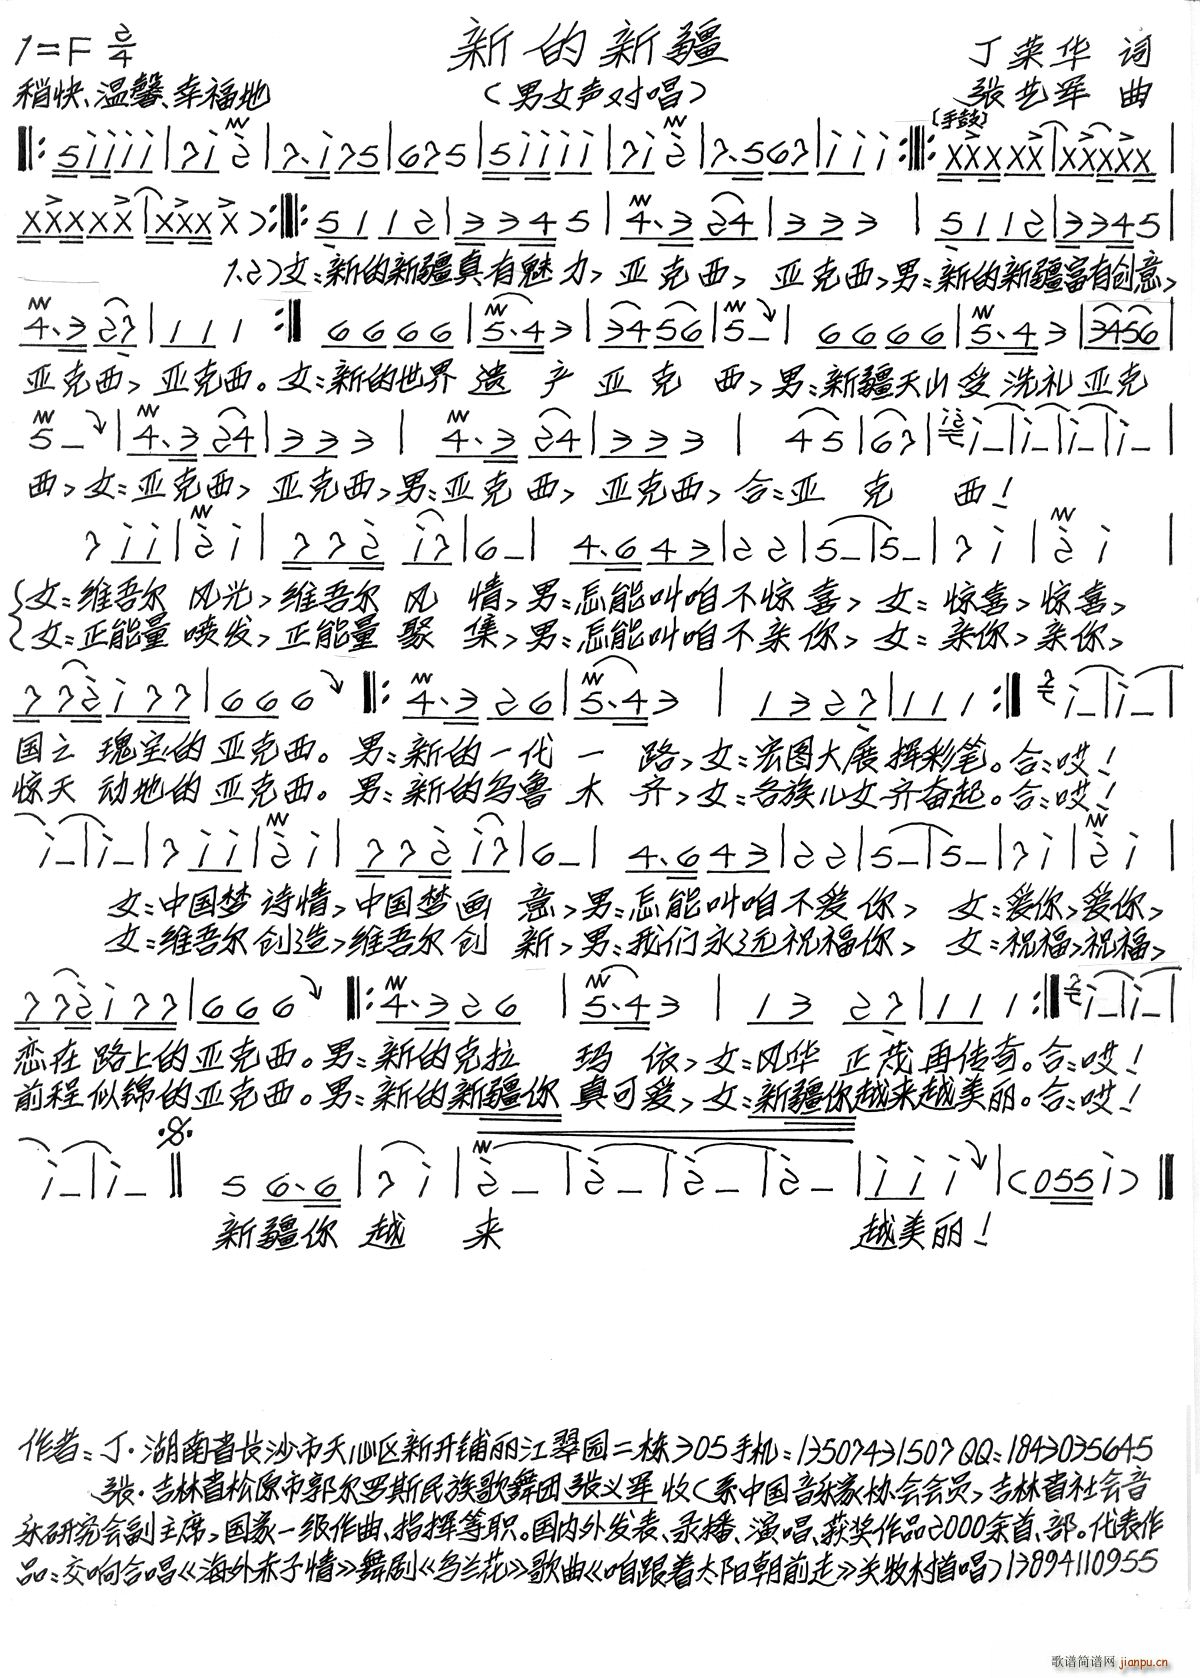 1=F 2/4
新的新疆
丁荣华 词
稍快、温馨、幸福地
(男女声对唱)
张艺军 曲
〔手鼓〕
1.2)女:新的新疆真有魅力,亚克西,亚克西,男:新的新疆富有创意,
亚克西,亚克西。女:新的世界遗产亚克西,男:新疆天山受洗礼亚克
西,女:亚克西,亚克西,男:亚克西,亚克西,合:亚克西!
女:维吾尔风光,维吾尔风情,男:怎能叫咱不惊喜,女:惊喜,惊喜,
女:正能量喷发,正能量聚集,男:怎能叫咱不亲你,女:亲你,亲你,
国之瑰宝的亚克西。男:新的一代一路,女:宏图大展挥彩笔。合:哎!
惊天动地的亚克西。男:新的乌鲁木齐,女:各族儿女齐奋起。合:哎!
女:中国梦诗情,中国梦画意,男:怎能叫咱不爱你,女:爱你,爱你,
女:维吾尔创造,维吾尔创新,男:我们永远祝福你,女:祝福,祝福,
恋在路上的亚克西。男:新的克拉玛依,女:风华正茂再传奇。合:哎!
前程似锦的亚克西。男:新的新疆你真可爱,女:新疆你越来越美丽。合:哎!
新疆你越来越美丽!
作者:丁·湖南省长沙市天心区新开铺丽江翠园二栋305手机:13507431507 QQ:1843035645
张·吉林省松原市郭尔罗斯民族歌舞团张义军收(系中国音乐家协会会员,吉林省社会音
乐研究会副主席,国家一级作曲、指挥等职。国内外发表、录播、演唱、获奖作品2000余首、部。代表作
品:交响合唱《海外赤子情》舞剧《乌兰花》歌曲《咱跟着太阳朝前走》关牧村首唱)13894110955
歌谱简谱网
jianpu.cn